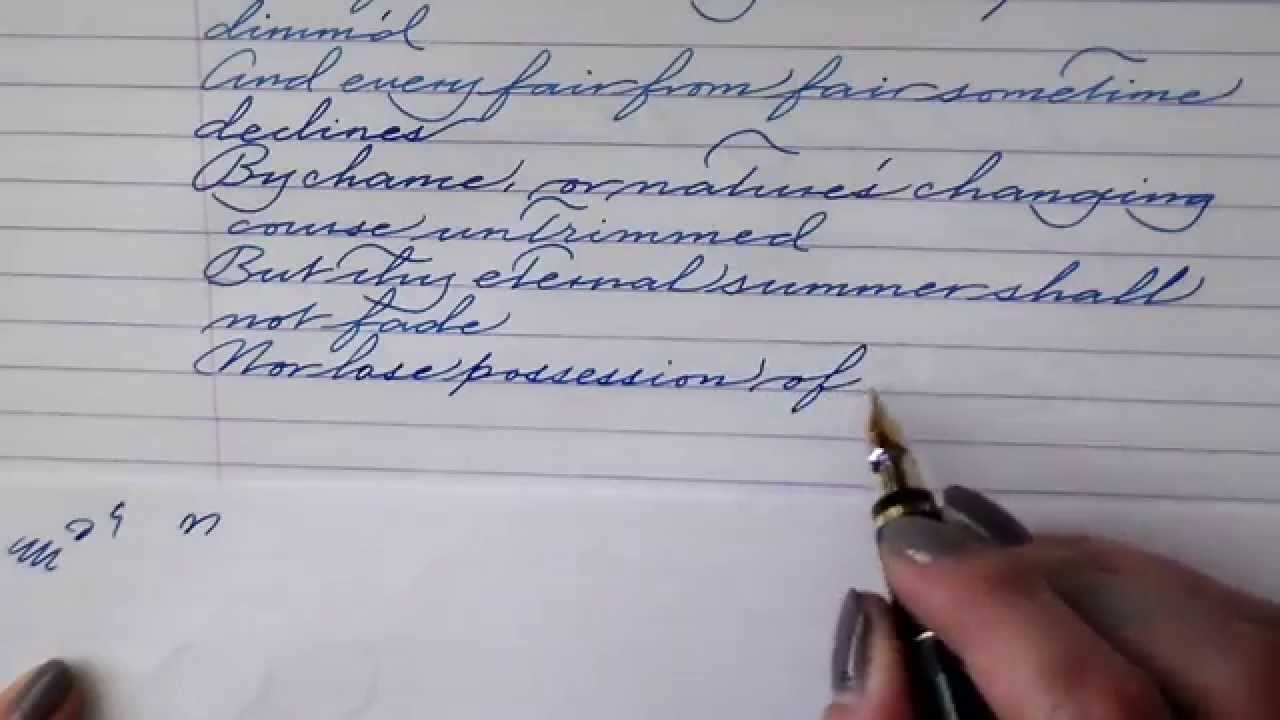 dimm'd
And every fair from fair sometime
declines
By chance, or nature's changing
course untrimmed
But thy eternal summer shall
not fade
Nor lose possession of
n